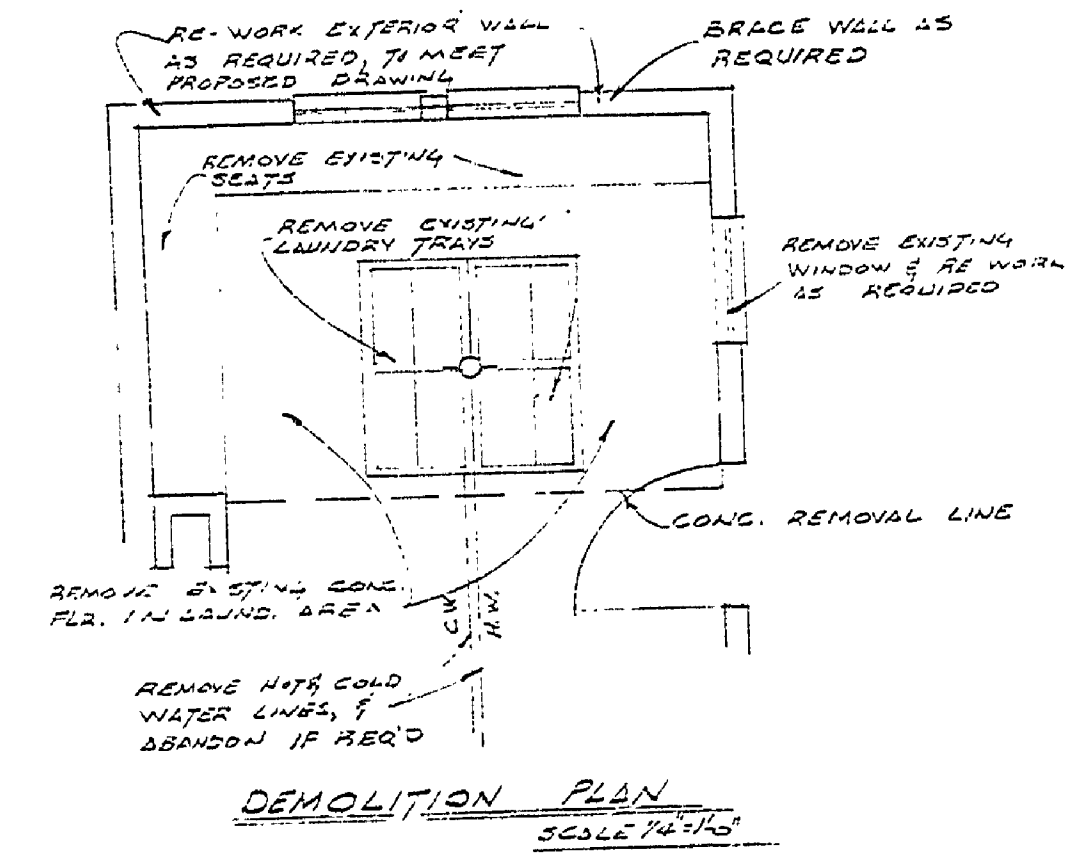 RE-WORK EXTERIOR WALL
AS REQUIRED, TO MEET
PROPOSED DRAWING
BRACE WALL AS
REQUIRED
REMOVE EXISTING
SEATS
REMOVE EXISTING
LAUNDRY TRAYS
REMOVE EXISTING
WINDOW & RE WORK
AS REQUIRED
CONC. REMOVAL LINE
REMOVE EXISTING CONC.
FLR. IN LAUND. AREA
C.W.
H.W.
REMOVE HOT & COLD
WATER LINES, &
ABANDON IF REQ'D
DEMOLITION PLAN
SCALE 1/4"=1'-0"